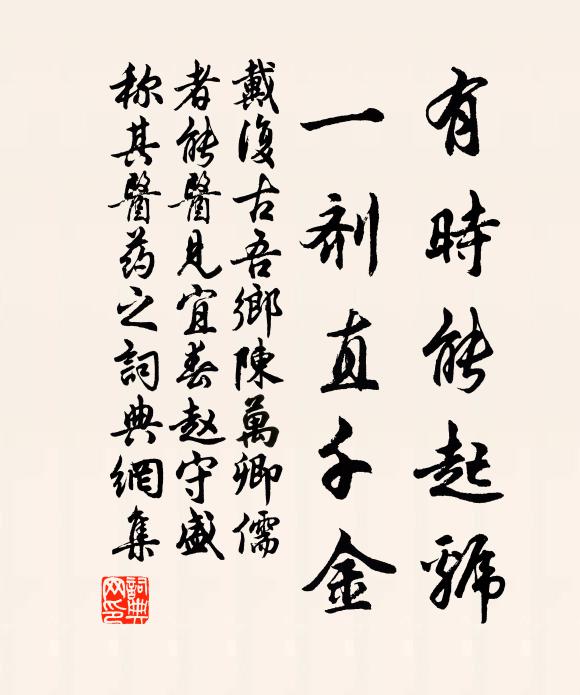 有時能起號
一剂直千金
戴復古吾鄉陳萬卿儒
者能醫見宜春赵守盛
称其醫药之詞典網集
詞典网印